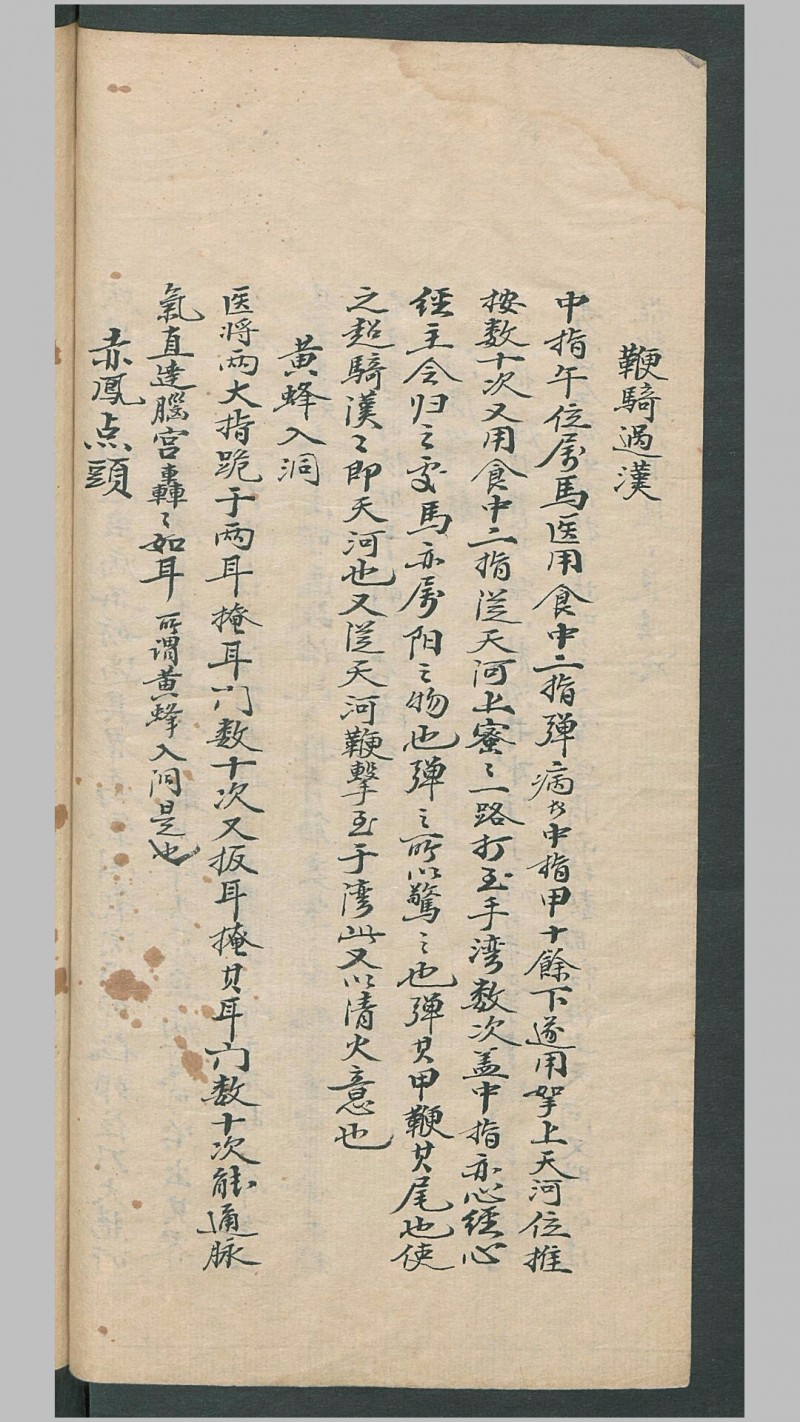 鞭騎過漢
中指午位属馬医用食中二指弹病者中指甲十餘下遂用拏上天河位推
按数十次又用食中二指從天河上密〻一路打至手湾数次盖中指亦心經心
經主令归之处馬亦属阳之物也弹之所以驚之也弹其甲鞭其尾也使
之超騎漢〻即天河也又從天河鞭擊至手湾此又以清火意也
黄蜂入洞
医将两大指跪于两耳掩耳门数十次又扳耳掩其耳门数十次能通脉
氣直達腦宫轟〻如耳 所谓黄蜂入洞是也
赤鳳点頭